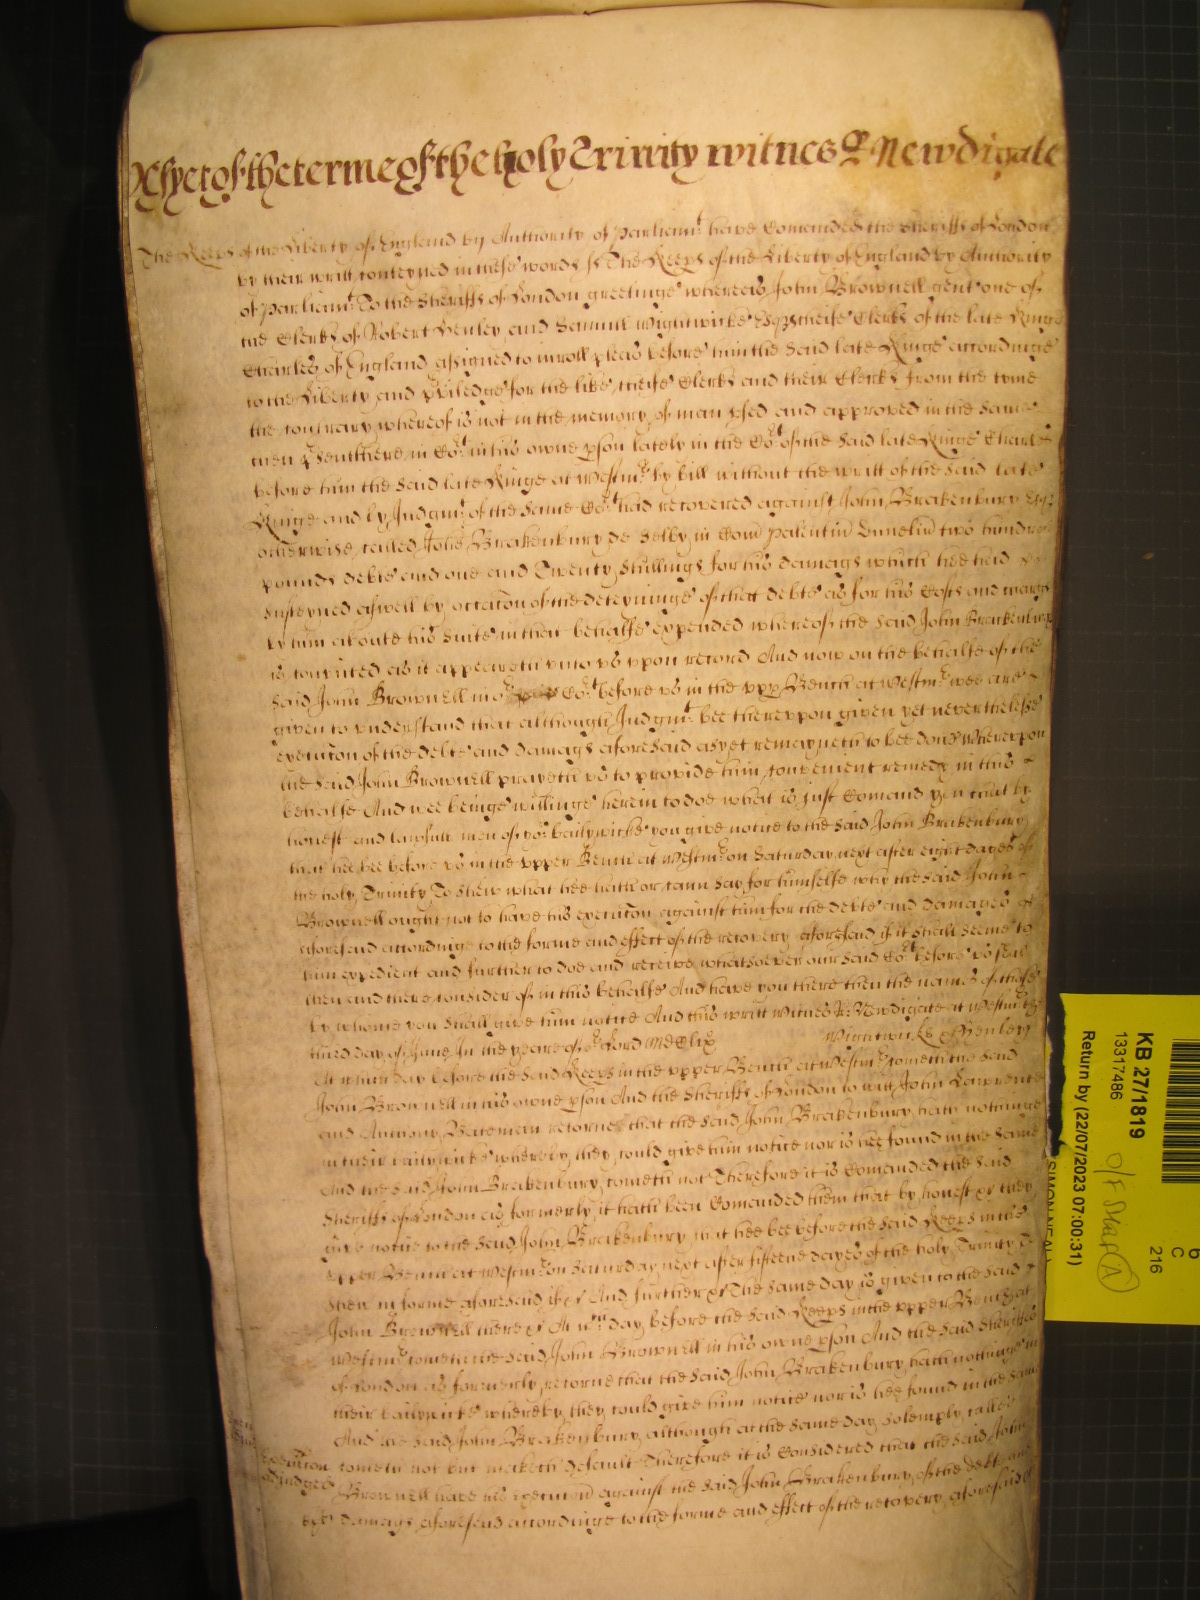 As yet of the terme of the holy Trinity witnes R Newdigate
The Keeps of the Liberty of England by Authority of Parliamt have Comanded the Sheriffs of London
by their writt conteyned in these words ss The Keeps of the Liberty of England by Authority
of Parliamt To the Sheriffs of London greetinge whereas John Brownell gent one of
the Clerks of Robert Henley and Samuel Wightwicke Esqs cheife Clerks of the late Kinge
Charles of England assigned to inroll pleas before him the said late Kinge accordinge
to the Liberty and Priledge for the like cheife Clerks and their Clerks from the tyme
the contrary whereof is not in the memory of man vsed and approved in the same
then psent there in Cot in his owne pson lately in the Cot of the said late Kinge Charles
before him the said late Kinge at Westmr by bill without the writt of the said late
Kinge and by Judgmt of the same Cot had recovered against John Brakenbury Esqr
otherwise called John Brakenbury de Selby in Com Palentin Dunelm two hundred
pounds debte and one and Twenty shillings for his damags which hee had
susteyned aswell by occacon of the deteyninge of that debte as for his Costs and charges
by him aboute his suite in that behalfe expended whereof the said John Brakenbury
is convicted as it appeareth vnto vs vpon record And now on the behalfe of the
said John Brownell in or Cot before vs in the vpp Bench at Westmr wee are
given to vnderstand that although Judgmt bee therevpon given yet neverthelesse
execucon of the debte and damags aforesaid as yet remayneth to bee done Wherevpon
the said John Brownell prayeth vs to provide him convenient remedy in this
behalfe And wee beinge willinge herein to doe what is just Comand you that by
honest and lawfull men of yor bailywicke you give notice to the said John Brakenbury
that hee bee before vs in the vpper Bench at Westmr on Saturday next after eight dayes of
the holy Trinity To shew what hee hath or cann say for himselfe why the said John
Brownell ought not to have his execucon against him for the debte and damages
aforesaid accordinge to the forme and effect of the recovery aforesaid if it shall seeme to
him expedient and further to doe and receive whatsoever our said Cot before vs shall
then and there consider of in this behalfe And have you there then the names of those
by whome you shall give him notice And this writt Witnes R: Newdigate at Westmr the
third day of June In the yeare of or Lord MDClix Wightwicke & Henley
At which day before the said Keeps in the vpper Bench at Westmr cometh the said
John Brownell in his owne pson And the Sheriffs of London to witt John Lawrence
and Anthony Bateman retorne that the said John Brakenbury hath nothinge
in their bailywicke whereby they could give him notice nor is hee found in the same
And the said John Brakenbury cometh not Therefore it is Comanded the said
Sheriffs of London as formerly it hath been Comanded them that by honest &c they
give notice to the said John Brakenbury that hee bee before the said Keeps in the
vpper Bench at Westmr on Saturday next after fifteene dayes of the holy Trinity to
shew in forme aforesaid if &c And further &c The same day is given to the said
John Brownell there &c At wch day before the said Keeps in the vpper Bench at
Westmr cometh the said John Brownell in his owne pson And the said Sheriffs
of London as formerly retorne that the said John Brakenbury hath nothinge in
their bailywicke whereby they could give him notice nor is hee found in the same
And the said John Brakenbury although at the same day solemply called
cometh not but maketh default Therefore it is Considered that the said John
Execucon adiudged Brownell have his execucon against the said John Brakenbury of the debte and
damags aforesaid accordinge to the forme and effect of the recovery aforesaid &c
KB 27/1819
13317486
Return by (22/07/2023 07:00:31)
SIMON NEAL
6
C
216
A